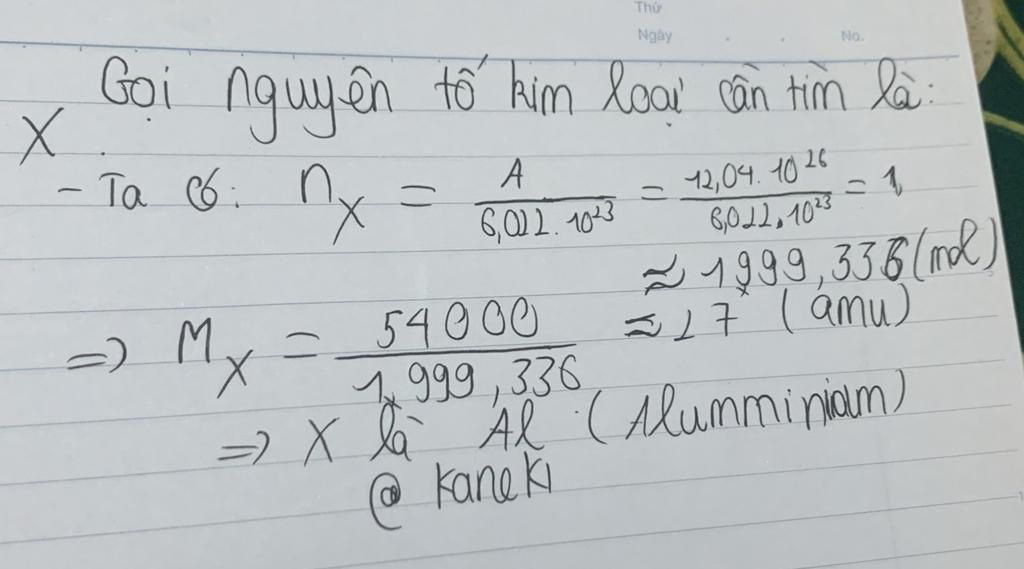 Thứ
Ngày . . No.
Gọi nguyên tố kim loại cần tìm là:
X.
- Ta có: nX = A / 6,022.10^23 = 12,04.10^26 / 6,022.10^23 = 1
≈ 1999,336 (mol)
=> MX = 54000 / 1,999,336 ≈ 27 (amu)
=> X là Al (Alumminium)
@ Kaneki